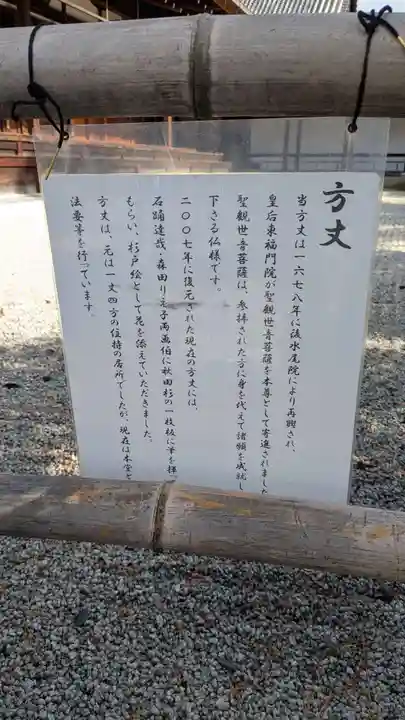 方丈
当方丈は一六七八年に後水尾院により再興され、
皇后東福門院が聖観世音菩薩を本尊として寄進されました
聖観世音菩薩は、参拝された方に身を代えて諸願を成就し
下さる仏様です。
二〇〇七年に復元された現在の方丈には、
石踊達哉・森田りえ子両画伯に秋田杉の一枚板に筆を揮
もらい、杉戸絵として花を添えていただきました。
方丈は、元は一丈四方の住持の居所でしたが、現在は本堂と
法要等を行っています。